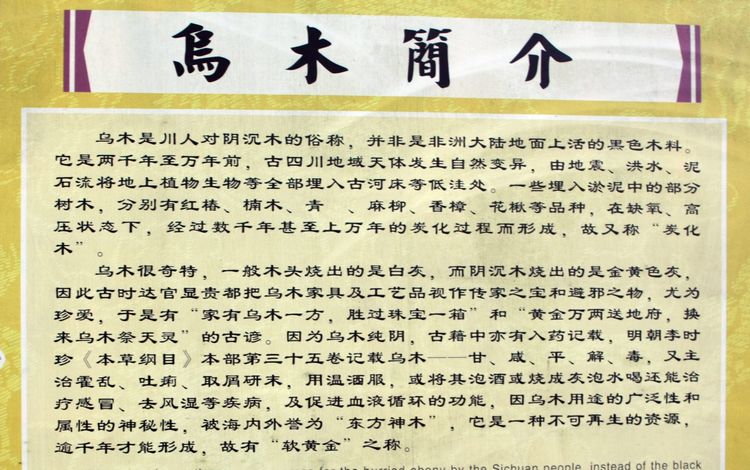 烏木簡介
乌木是川人对阴沉木的俗称，并非是非洲大陆地面上活的黑色木料。
它是两千年至万年前，古四川地域天体发生自然变异，由地震、洪水、泥
石流将地上植物生物等全部埋入古河床等低洼处。一些埋入淤泥中的部分
树木，分别有红椿、楠木、青　、麻柳、香樟、花楸等品种，在缺氧、高
压状态下，经过数千年甚至上万年的炭化过程而形成，故又称“炭化
木”。
乌木很奇特，一般木头烧出的是白灰，而阴沉木烧出的是金黄色灰，
因此古时达官显贵都把乌木家具及工艺品视作传家之宝和避邪之物，尤为
珍爱，于是有“家有乌木一方，胜过珠宝一箱”和“黄金万两送地府，换
来乌木祭天灵”的古谚。因为乌木纯阴，古籍中亦有入药记载，明朝李时
珍《本草纲目》本部第三十五卷记载乌木——甘、咸、平、解、毒，又主
治霍乱、吐痢、取屑研末，用温酒服，或将其泡酒或烧成灰泡水喝还能治
疗感冒、去风湿等疾病，及促进血液循环的功能，因乌木用途的广泛性和
属性的神秘性，被海内外誉为“东方神木”，它是一种不可再生的资源，
逾千年才能形成，故有“软黄金”之称。
for the burried ebony by the Sichuan people, instead of the black